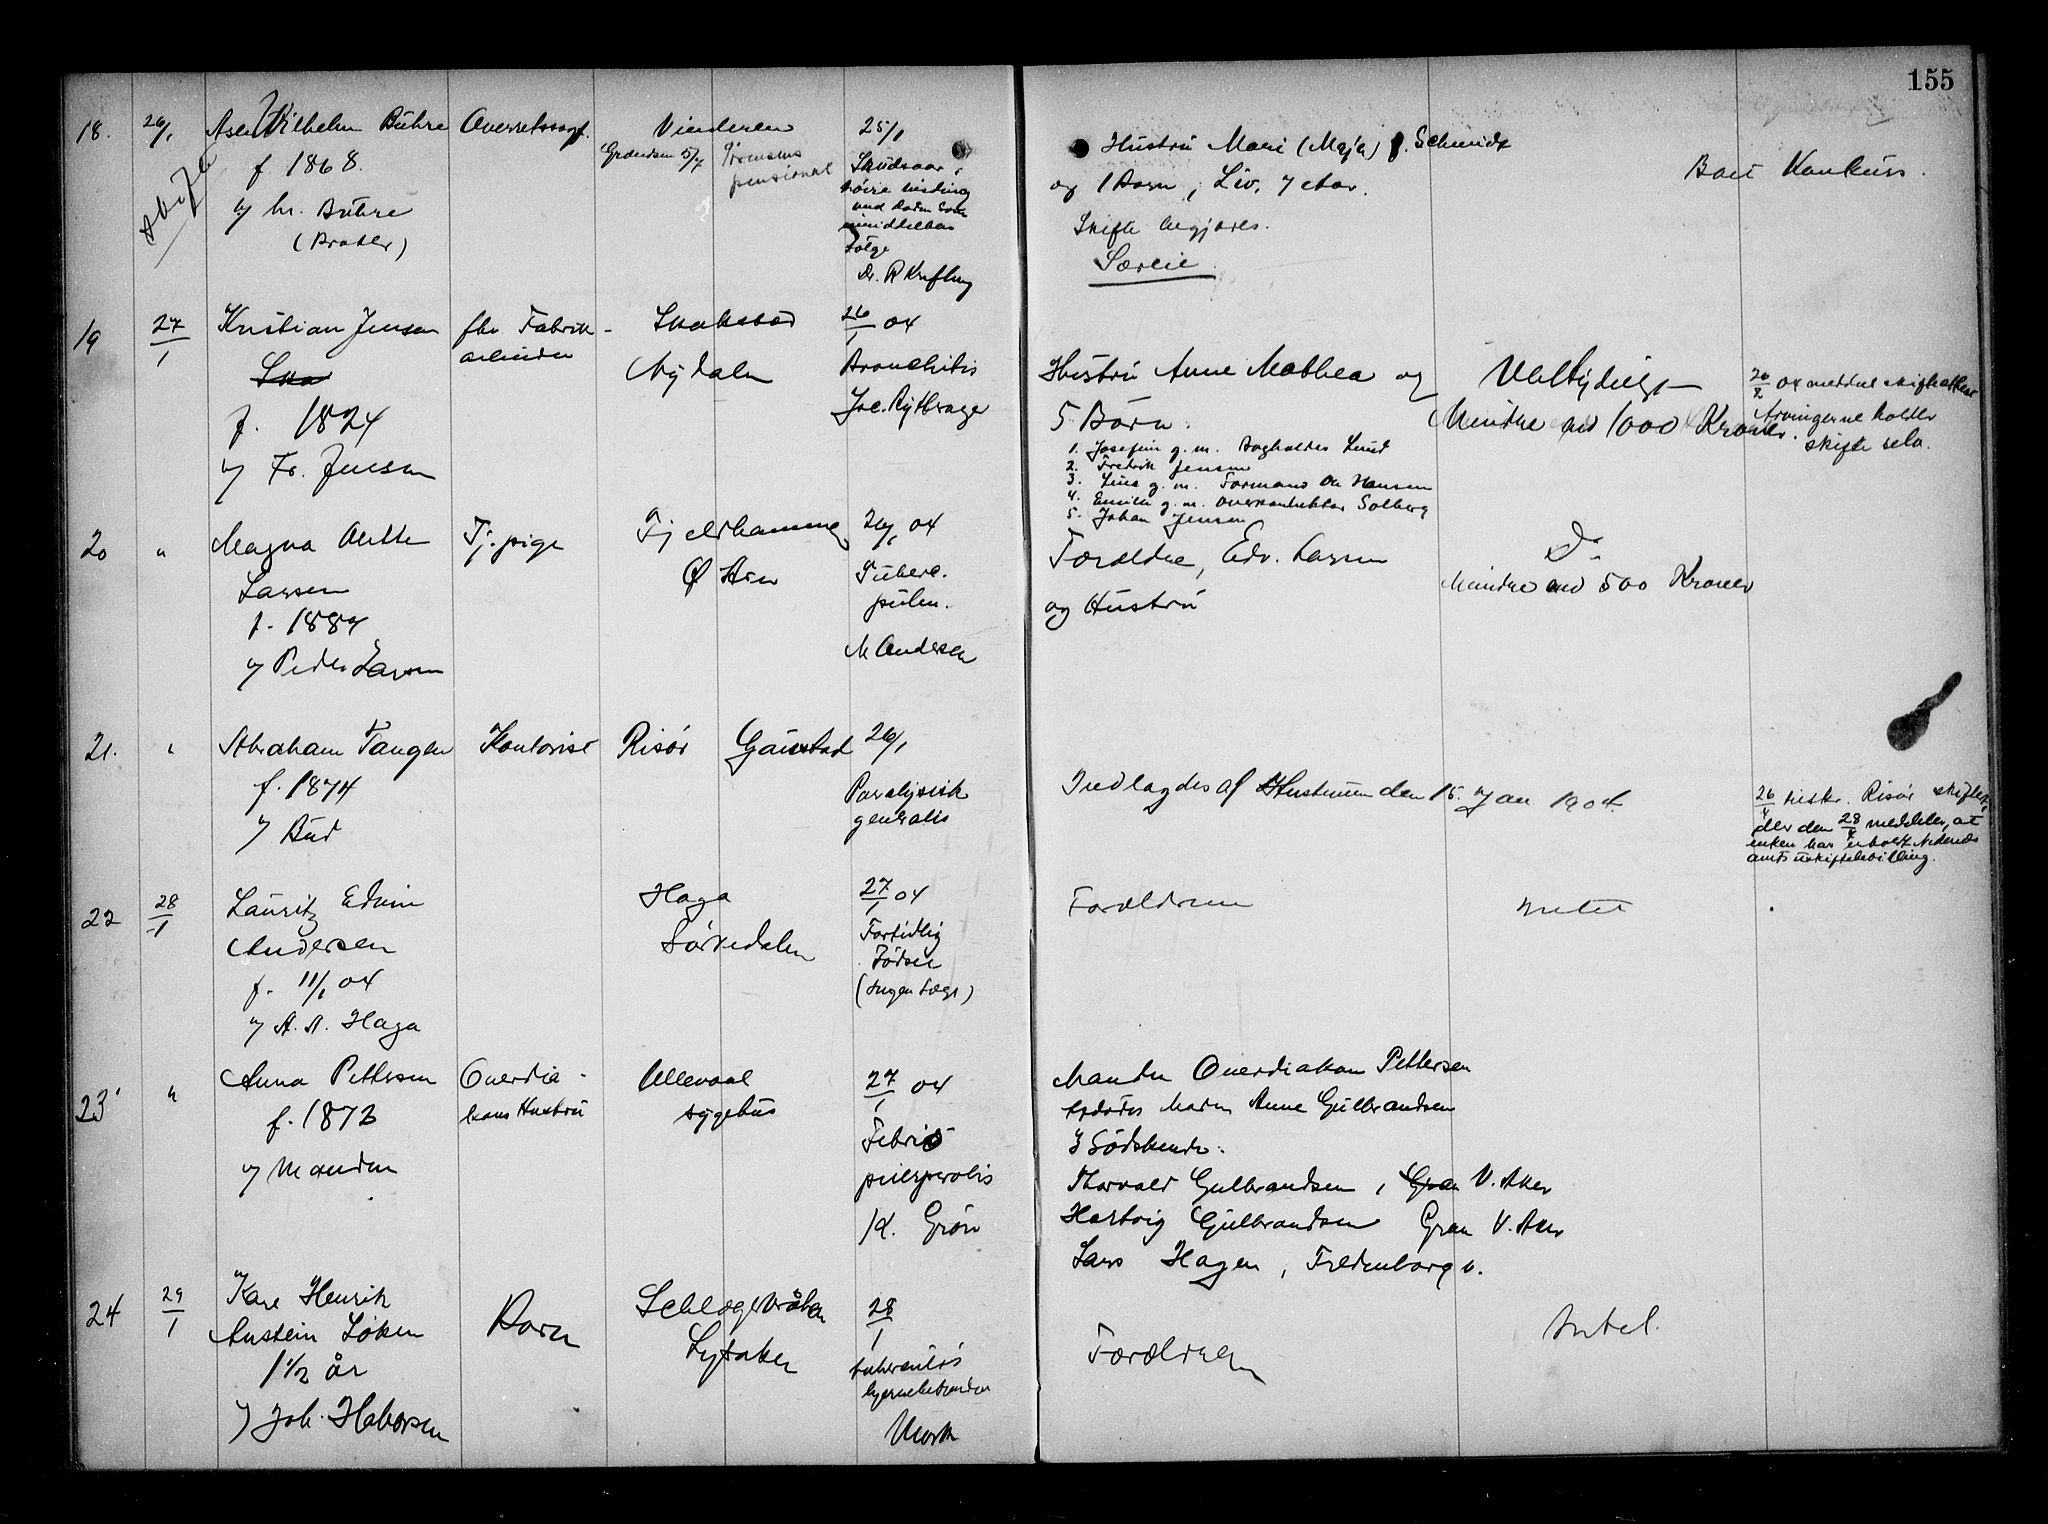 155
18. 26/1 Wilhelm Buhre Overretssagf. Vinderen 25/1
Skifte
f 1868.
v/ hr. Buhre
(Broder)
Grændsen 5/7
pensionat
Skudsaar i
høire tinding
med Døden som
umiddelbar
følge
Dr. R
Hustru Marie (Maja) f. Schmidt
og 1 Barn, Liv, 7 Aar.
Skifte begjæres.
Særeie
Boet Konkurs.
19 27/1 Kristian Jensen
f. 1824
v/ Fr. Jensen
fhv Fabrik-
arbeider
Nydalen
26/1 04
Bronchitis
Hustru Anne Mathea og
5 Børn:
1. Josefine g. m. Bogholder Lund
2. Fredrik Jensen
3. Lina g. m. Formand Ole Hansen
4. Emilie g. m. Solberg
5. Johan Jensen
Ubetydeligt
Mindre end 1000 Kroner.
26/2 04 meddelt skifteattest
Arvingerne holder
skifte selv.
20 " Magna
Larsen
v/ Peder Larsen
Tj. pige
Fjeldhammer
Ø Aker
26/1 04
Tuberc.
pulm.
M Andersen
Forældre, Edv. Larsen
og Hustru
Do
Mindre end 500 Kroner
21. " Abraham Tangen Kontorist Risør Gaustad 26/1
f. 1874
v/ Bud
Paralysis
generalis
Indlagdes af Hustruen den 15. Jan 1904.
26/4 tilskr. Risør skifter.,
der den 28/4 meddeler, at
enken har erholdt Nedenæs
amts uskiftebevilling.
22 28/1 Lauritz Edvin
Andersen
f. 11/1 04
v/ A. A. Haga
Haga
Sørkedalen
27/1 04
Fortidlig
Fødsel
(Ingen Læge)
Forældrene
Intet
23 " Anna Pettersen
f. 1872
v/ Manden
Overdia-
kons Hustru
Ullevaal
sygehus
27/1 04
Febris
puerperalis
K. Grøn
Manden Overdiakon Pettersen
Afdødes Moder Anne Gulbrandsen
3 Sødskende:
Thorvald Gulbrandsen, Gran V. Aker
Hartvig Gulbrandsen Gran V. Aker
Lars Hagen, Fredensborg v.
24 29/1 Kåre Henrik
Austein Løken
1 1/2 år
v/ Joh. Halvorsen
Barn
Lysaker
28/1
tuberculøs
hjernebetændelse
Mork
Forældrene
Intet.